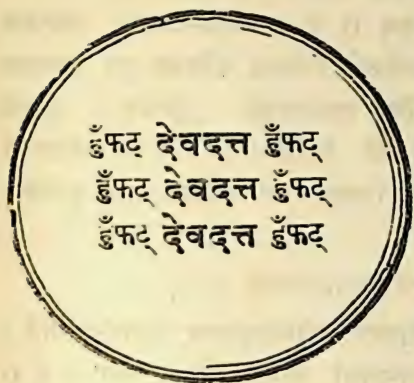 हुँफट् देवदत्त हुँफट्
हुँफट् देवदत्त हुँफट्
हुँफट् देवदत्त हुँफट्